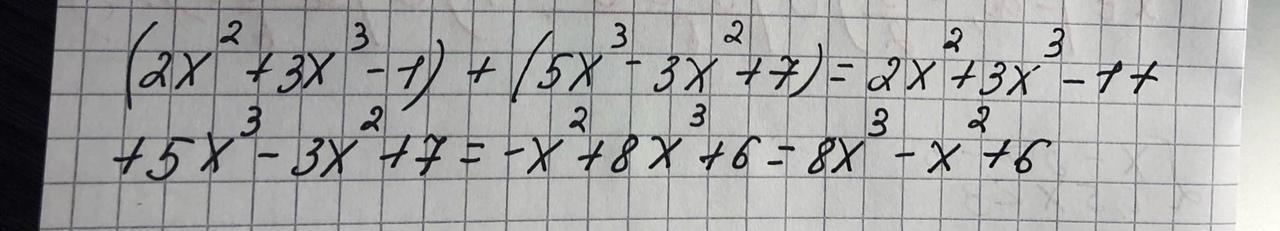 (2x² + 3x³ - 1) + (5x³ - 3x² + 7) = 2x² + 3x³ - 1 +
+ 5x³ - 3x² + 7 = -x² + 8x³ + 6 = 8x³ - x² + 6